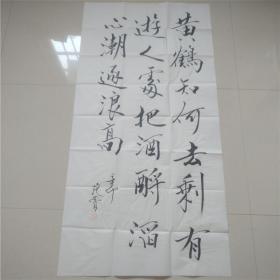 黄鶴知何去剩有
遊人處把酒酹滔
心潮逐浪高